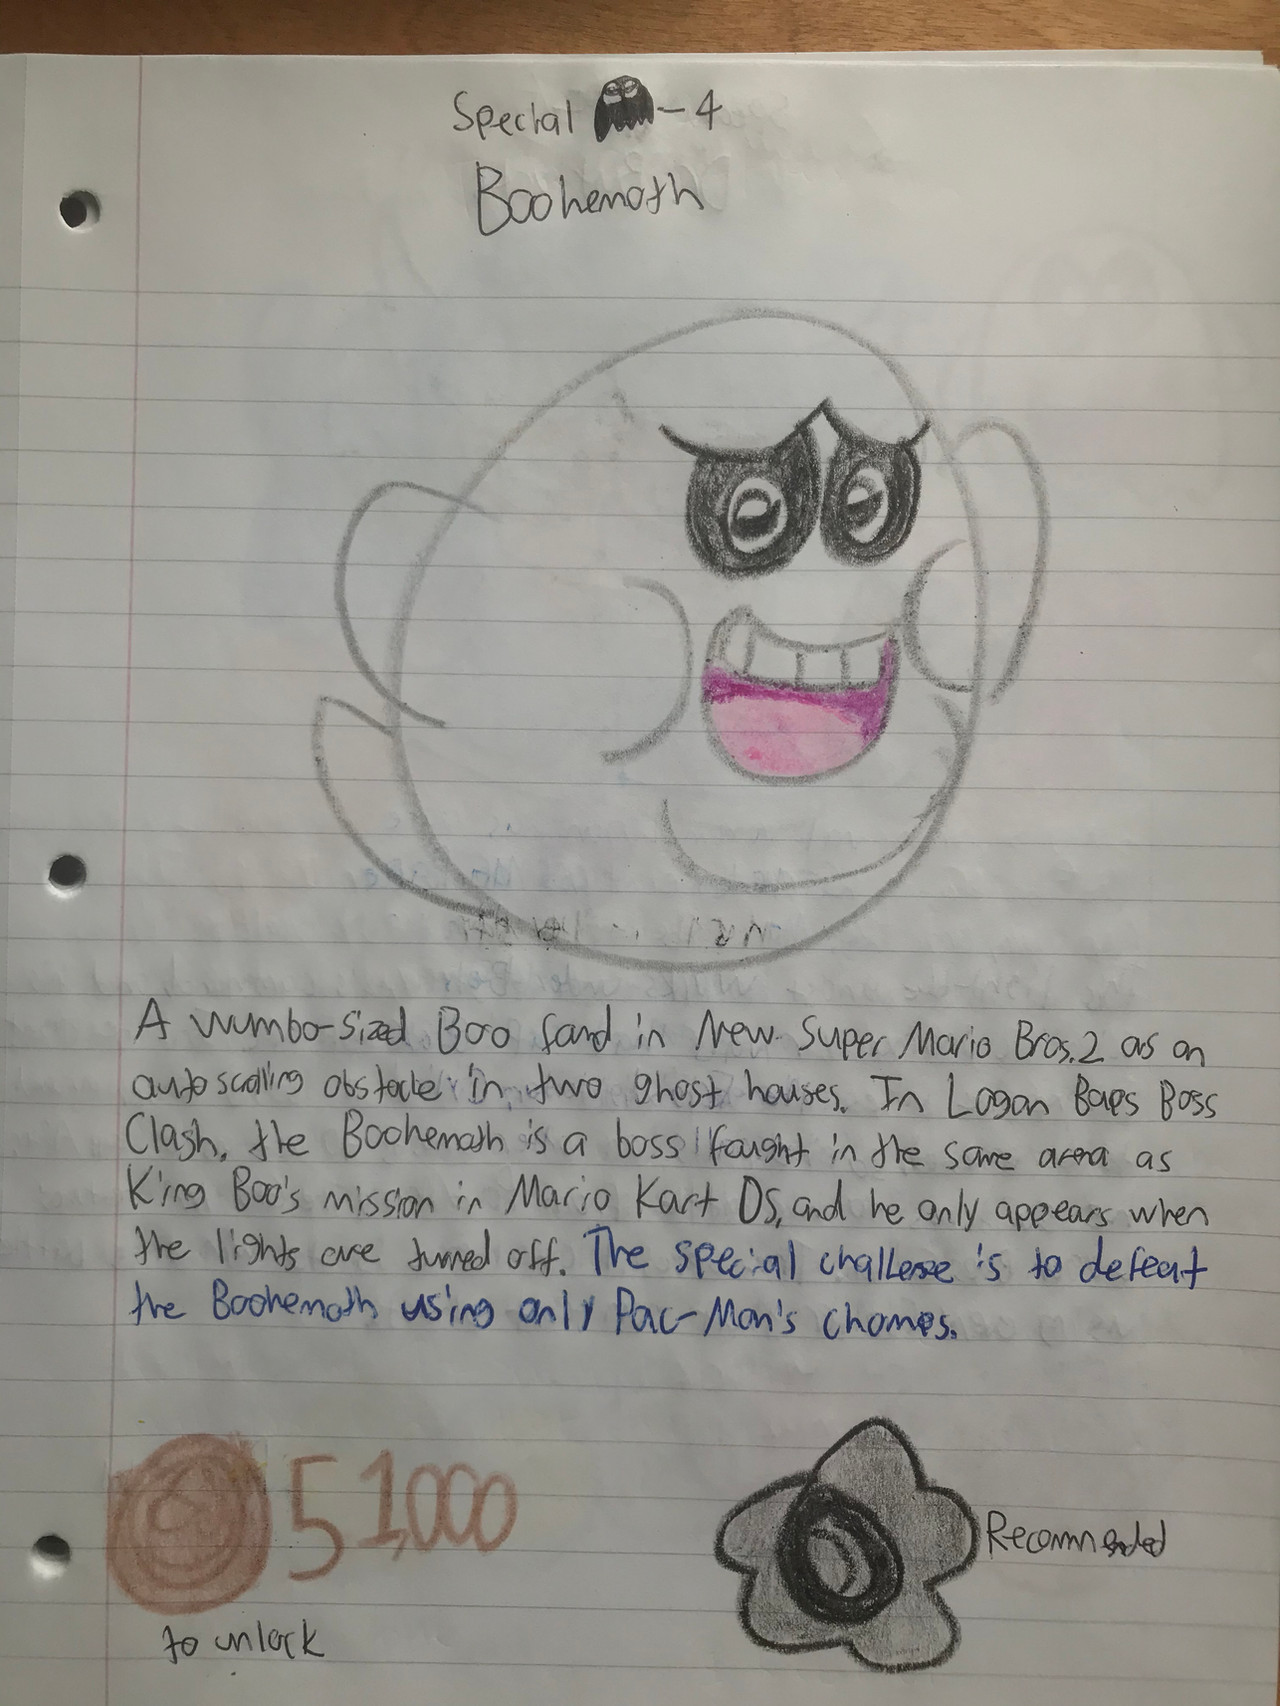 Special -4
Boohemoth
A wumbo-sized Boo fond in New Super Mario Bros. 2 as an
autoscrolling obstacle in two ghost houses. In Logan Baps Boss
Clash, the Boohemoth is a boss fought in the same area as
King Boo's mission in Mario Kart DS, and he only appears when
the lights are turned off. The special challenge is to defeat
the Boohemoth using only Pac-Man's chomps.
51,000
to unlock
Recommended